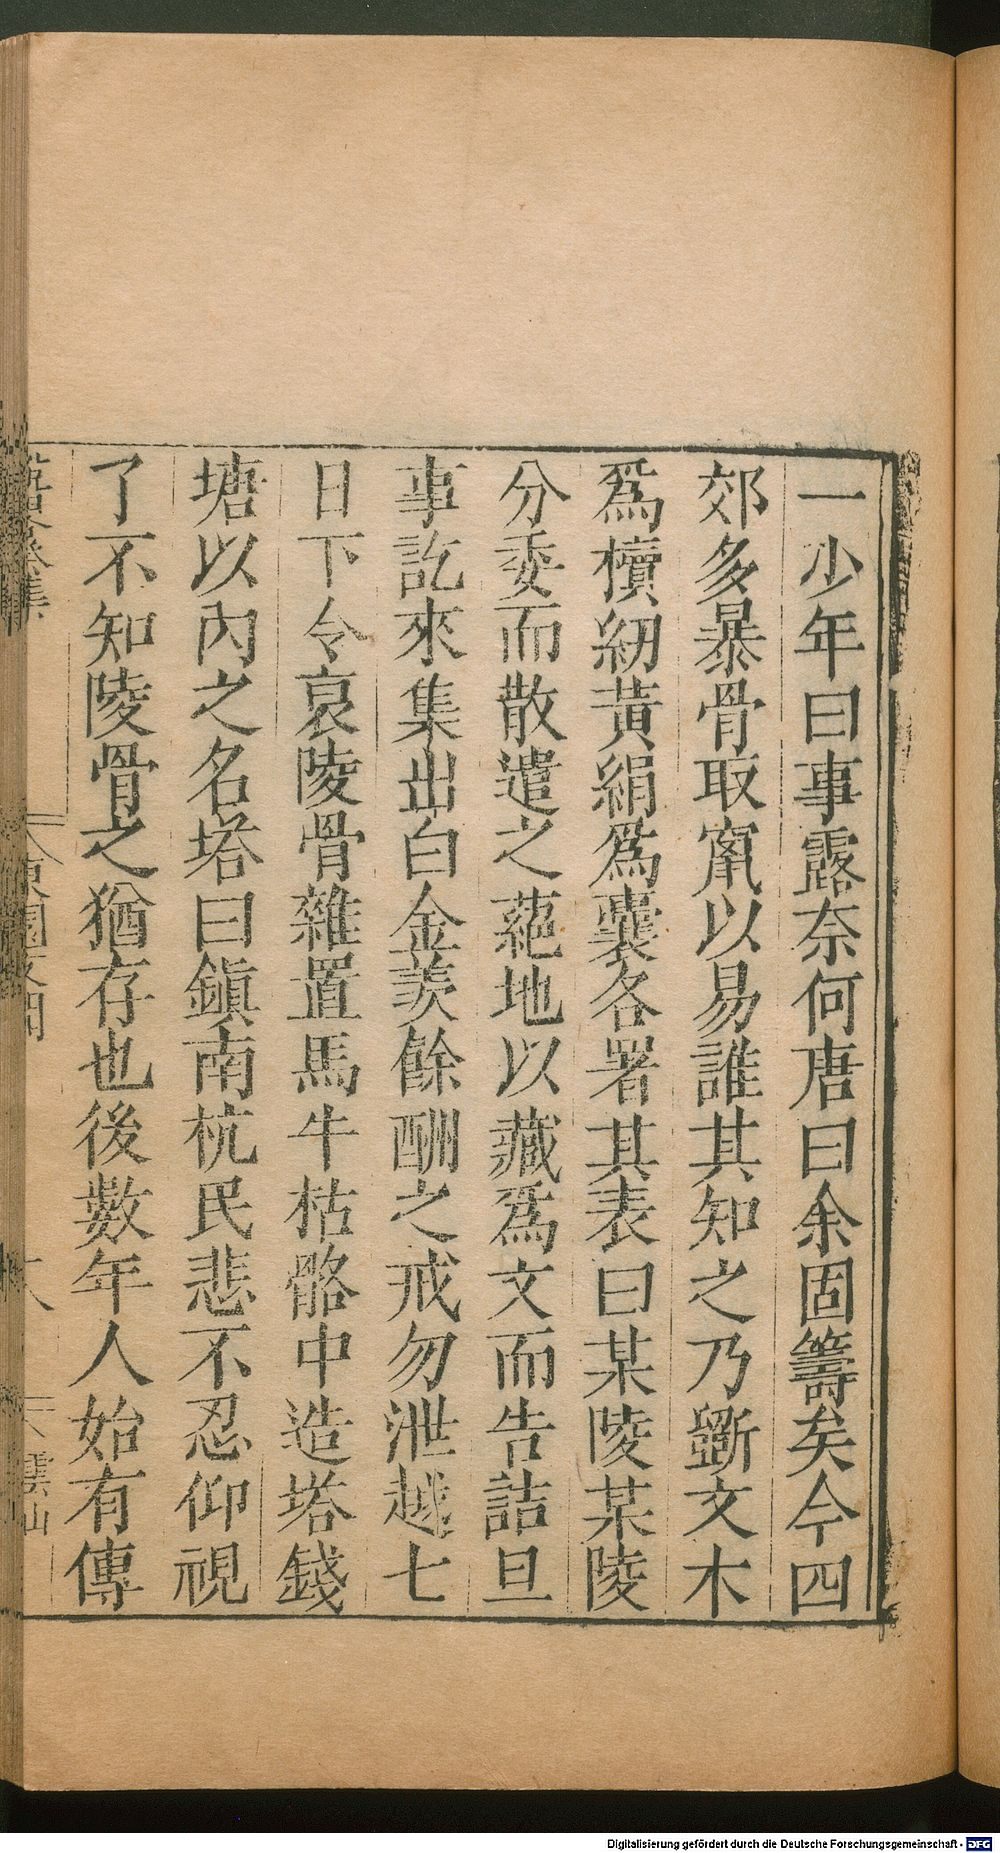 一少年曰事露奈何唐曰余固籌矣今四
郊多暴骨取竄以易誰其知之乃斲文木
爲櫝紉黃絹爲囊各署其表曰某陵某陵
分委而散遣之蕝地以藏爲文而告詰旦
事訖來集出白金羨餘酬之戒勿泄越七
日下令裒陵骨雜置馬牛枯骼中造塔錢
塘以內之名塔曰鎮南杭民悲不忍仰視
了不知陵骨之猶存也後數年人始有傳
雲山
Digitalisierung gefördert durch die Deutsche Forschungsgemeinschaft - DFG